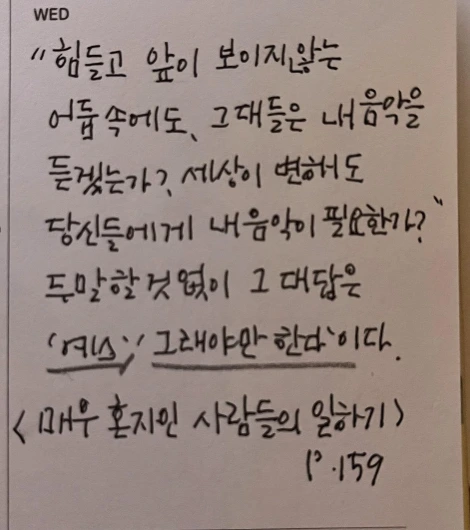 WED
"힘들고 앞이 보이지않는
어둠 속에도, 그대들은 내 음악을
듣겠는가? 세상이 변해도
당신들에게 내 음악이 필요한가?"
두말할 것 없이 그 대답은
'예스', '그래야만 한다'이다.
<매우 혼자인 사람들의 일하기>
P.159